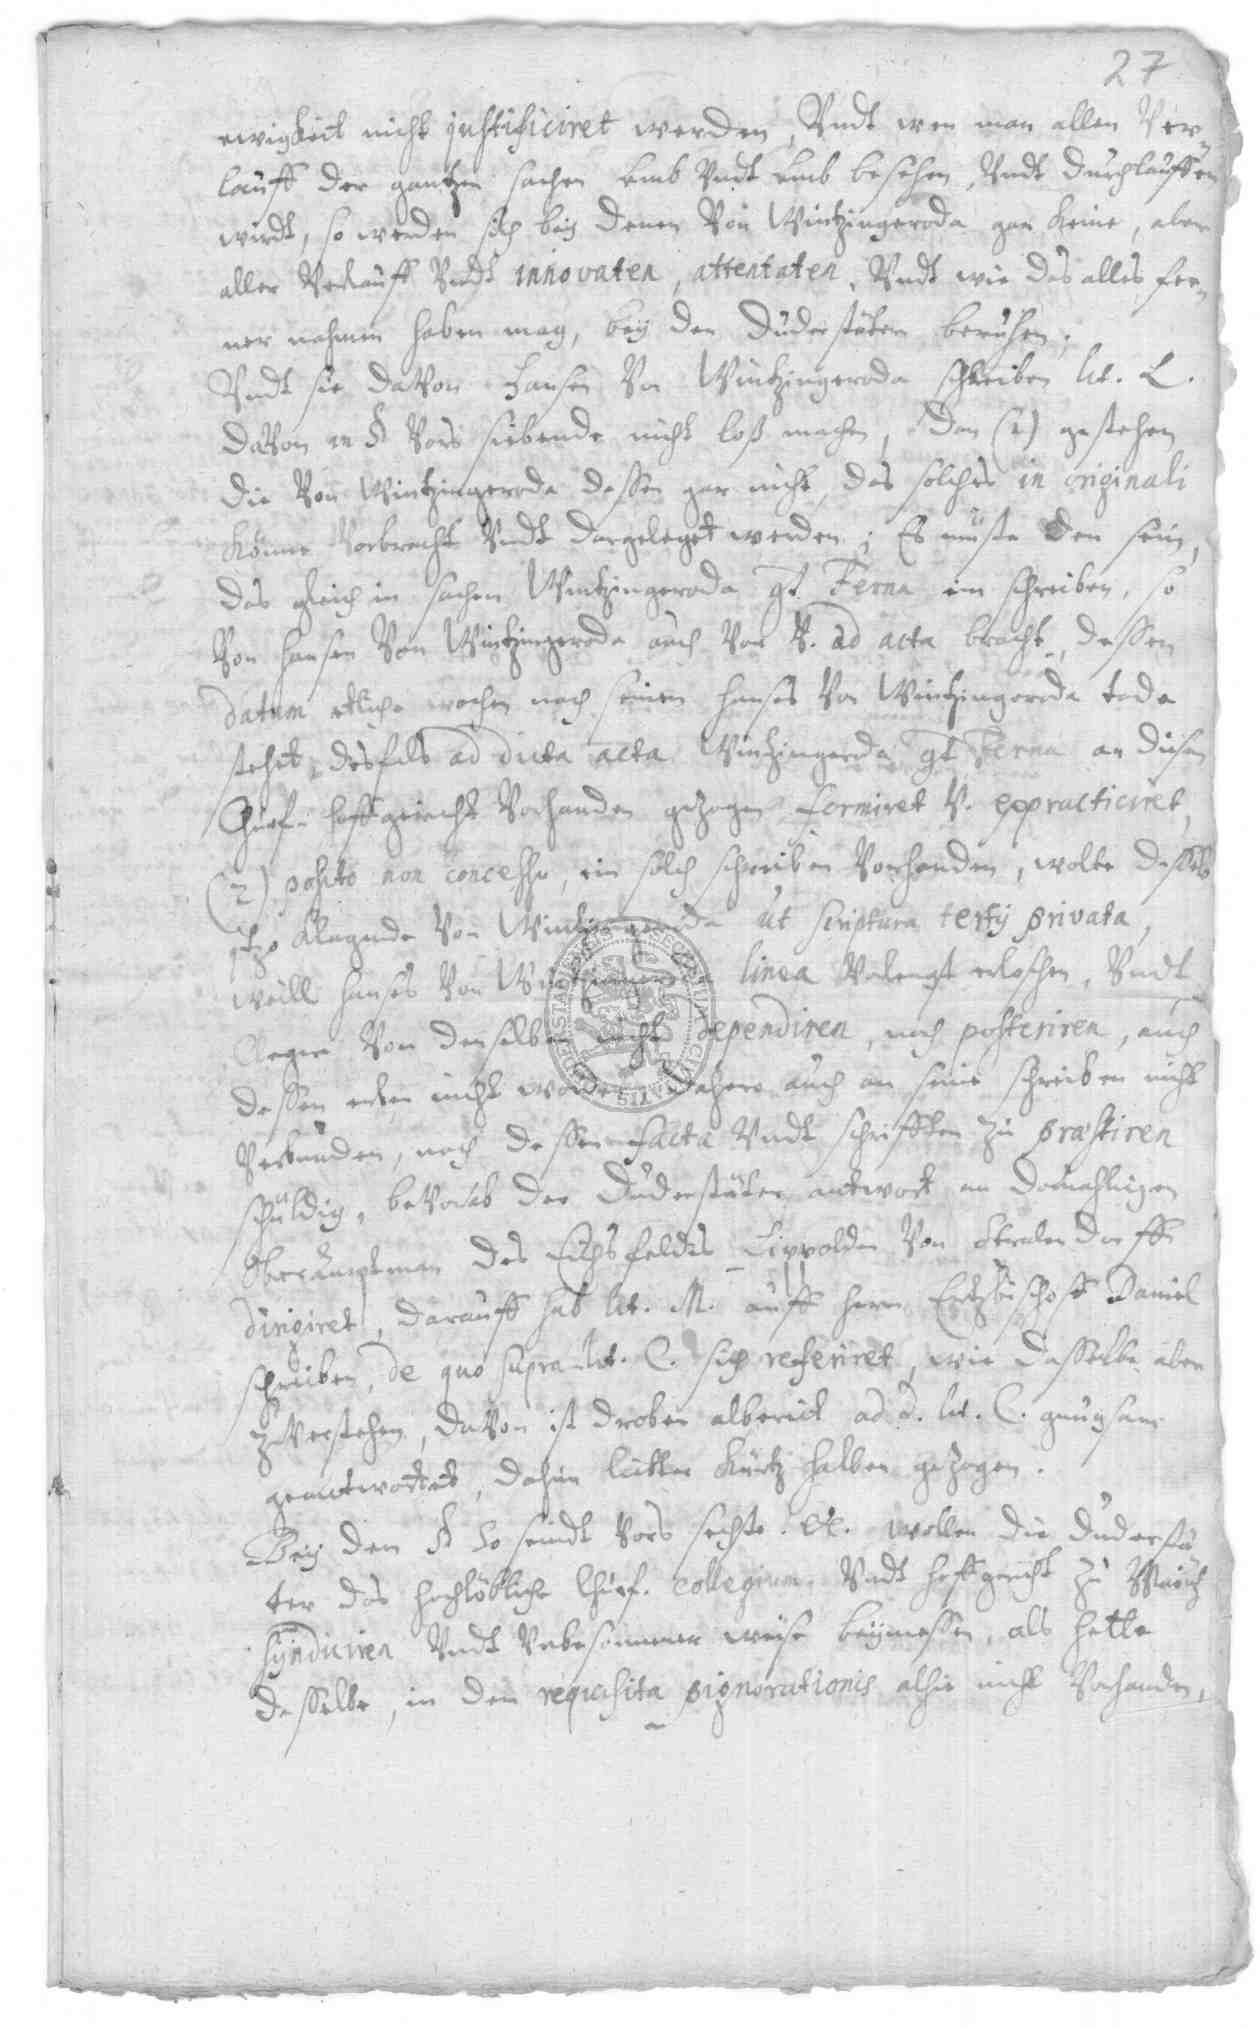 27
ewigkeit nicht justificiret werden, Vndt wen man allen Ver-
lauff der gantzen sachen umb Vndt umb besehen, Vndt durchlauffen
wirdt, so werden sich beÿ denen Von Wintzingeroda gar keine, aber
aller Verlauff Vndt innovaten, attentaten, Vndt wie das alles fer-
ner nahmen haben mag, beÿ den Duderstätern beruhen;
Vndt sie daVon Hansen Von Wintzingeroda schreiben lit. L.
daVon in § Vors siebende nicht loß machen, dan (1) gestehen
die Von Wintzingeroda dessen gar nicht, das solches in originali
könne Vorbracht Vndt dargeleget werden; Es müste den sein,
das gleich in sachen Wintzingeroda gt. Ferna ein schreiben, so
Von Hansen Von Wintzingeroda auch Vor V. ad acta bracht, dessen
datum etliche wochen nach seinen Hanses Von Wintzingeroda tode
stehet, desfals ad dicta acta Wintzingeroda gt Ferna an diesem
Churf. Hoffgericht Vorhanden gezogen, formiret V. expracticiret,
(2) posito non concesso, ein solch schreiben Vorhanden, wolte dasselb
itzo klagende Von Wintzingeroda ut scriptura tertÿ privata,
weill Hanses Von Wintzingeroda linea Vorlengst erloschen, Vndt
kleger Von denselben nicht dependiren, noch posteriren, auch
dessen erben nicht worden, dahero auch an seine schreiben nicht
Verbunden, noch dessen facta Vndt schrifften zu præstiren
schuldig, beVorab der Duderstäter antwort an domahligen
Oberambtman des Eichsfeldes Lippolden Von Stralendorff
dirigiret, darauff sub lit. M. auff Herrn Ertzbischoff Daniel
schreiben, de quo supra lit. C. sich referiret, wie dasselbe aber
zuVerstehen, daVon ist droben albereit ad d. lit. C. gnugsam
geantwortet, dahin lautter kürtz halben gezogen.
Beÿ den § So seindt Vors sechste. etc. wollen die Duderstä
ter das hochlöbliche Churf. collegium Vndt Hoffgericht zu Maintz
sÿndiciren Vndt Vnbesonnener weise beÿmessen, als hette
dasselbe, in den requisita pignorationis alhie nicht Vorhanden,